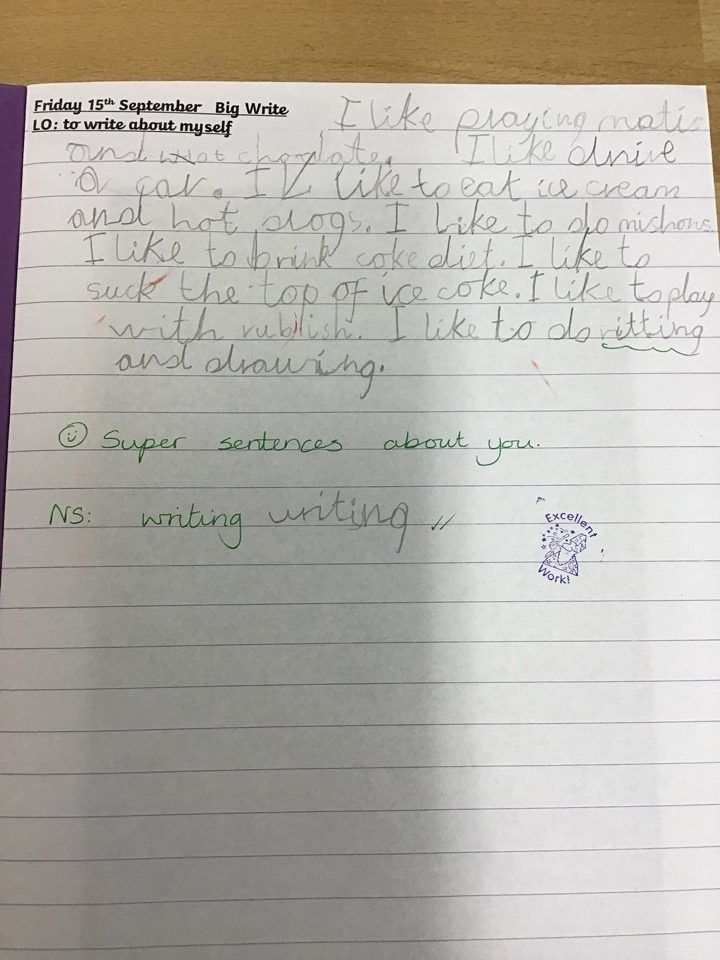 Friday 15th September Big Write
LO: to write about myself
I like praying matis
and hot choclate. I like drive
a car. I L like to eat ice cream
and hot dogs. I like to do mishons.
I like to brink coke diet. I like to
suck the top of ice coke. I like to play
with rubbish. I like to do ritting
and drawing.
Super sentences about you.
NS: writing writing
Excellent
Work!